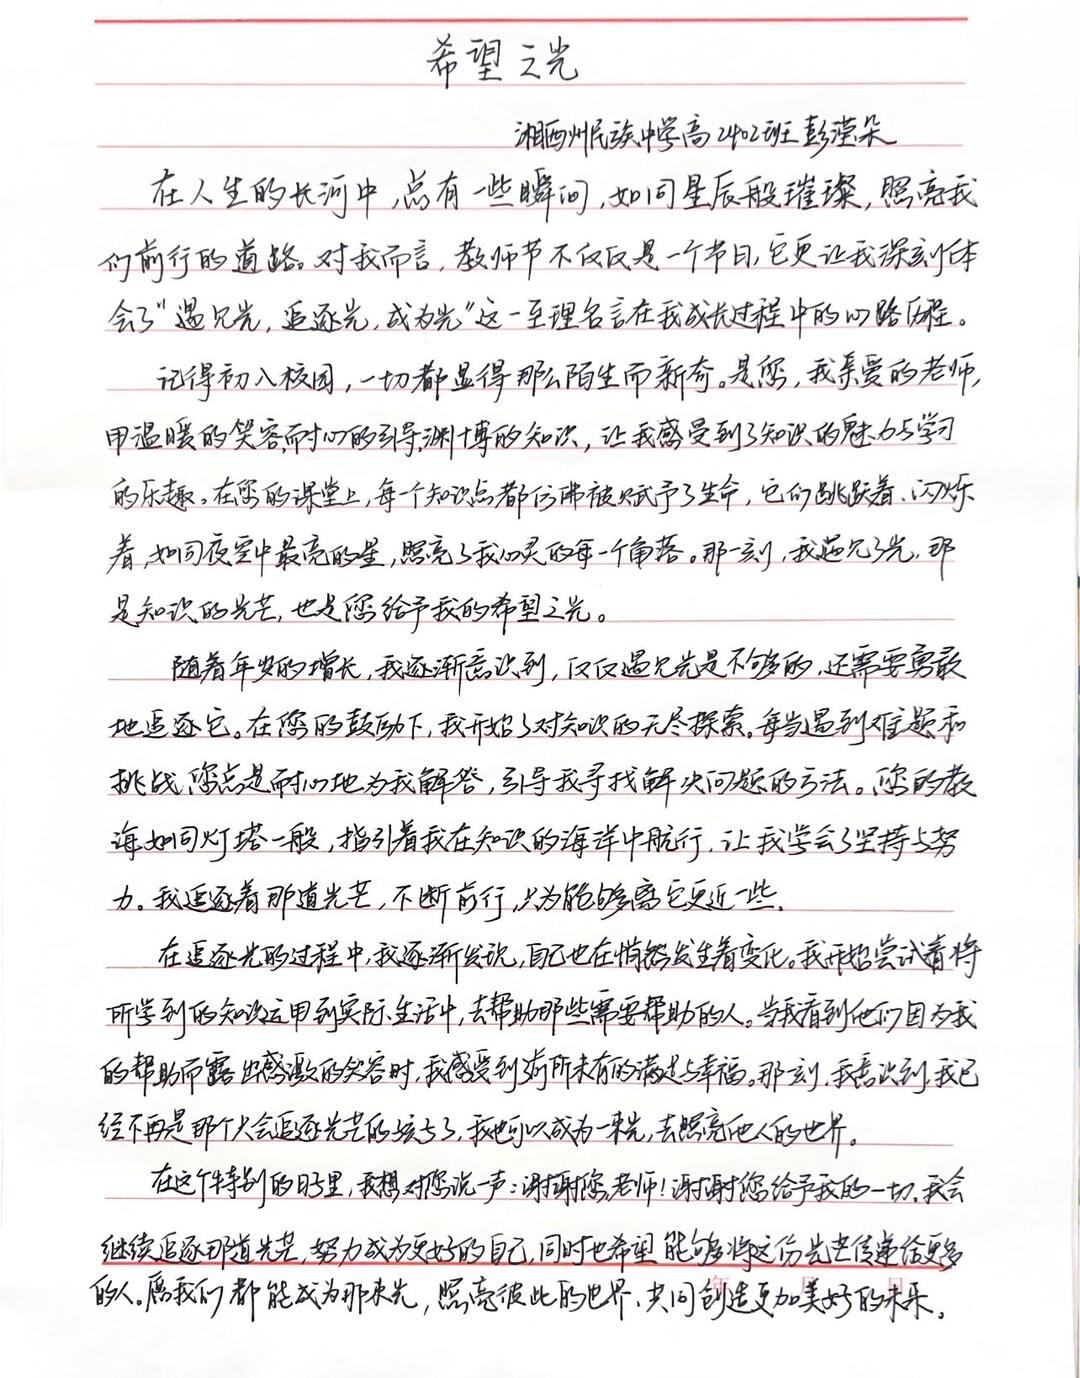 希望之光
湘西州民族中学高2402班 彭滢朵
在人生的长河中,总有一些瞬间,如同星辰般璀璨,照亮我
们前行的道路。对我而言,教师节不仅仅是一个节日,它更让我深刻体
会了“遇见光,追逐光,成为光”这一至理名言在我成长过程中的心路历程。
记得初入校园,一切都显得那么陌生而新奇。是您,我亲爱的老师,
用温暖的笑容,耐心的引导,渊博的知识,让我感受到了知识的魅力与学习
的乐趣。在您的课堂上,每一个知识点都仿佛被赋予了生命,它们跳跃着、闪烁
着,如同夜空中最亮的星,照亮了我心灵的每一个角落。那一刻,我遇见了光,那
是知识的光芒,也是您给予我的希望之光。
随着年岁的增长,我逐渐意识到,仅仅遇见光是不够的,还需要勇敢
地追逐它。在您的鼓励下,我开始了对知识的无尽探索。每当遇到难题和
挑战,您总是耐心地为我解答,引导我寻找解决问题的方法。您的教
海如同灯塔一般,指引着我在知识的海洋中航行,让我学会了坚持与努
力。我追逐着那道光芒,不断前行,只为能够离它更近一些。
在追逐光的过程中,我逐渐发现,自己也在悄然发生着变化。我开始尝试着将
所学到的知识运用到实际生活中,去帮助那些需要帮助的人。当我看到他们因为我
的帮助而露出感激的笑容时,我感受到前所未有的满足与幸福。那刻,我意识到,我已
经不再是那个只会追逐光芒的孩子了,我也可以成为一束光,去照亮他人的世界。
在这个特别的日子里,我想对您说一声:谢谢您,老师!谢谢您给予我的一切。我会
继续追逐那道光芒,努力成为更好的自己,同时也希望能够将这份光芒传递给更多
的人。愿我们都能成为那束光,照亮彼此的世界,共同创造更加美好的未来。
年 月 日